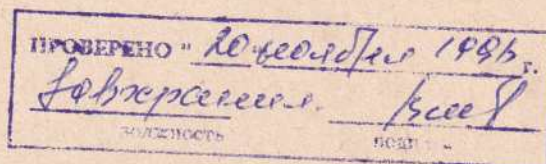 ПРОВЕРЕНО " 20 " ноября 1996 г.
Завхранил.
должность подпись